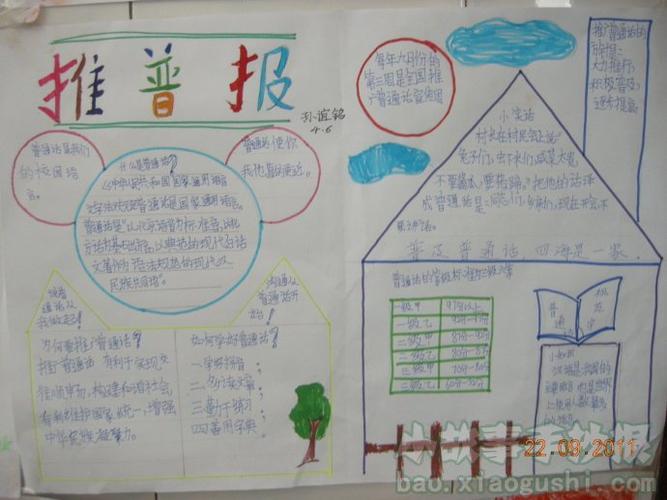 推普报
孙谊铭
4.6
普通话是我们
的校园语
言。
普通话使你
我他靠的更近。
什么是普通话?
《中华人民共和国国家通用语言
文字法》规定普通话是国家通用语言。
普通话是"以北京语音为标准音,以北
方话为基础方言,以典范的现代白话
文著作为语法规范的现代汉
民族共同语"。
说普
通话从
我做起!
沟通从
普通话开
始!
为何要推广普通话?
推广普通话,有利于实现交
往顺畅,构建和谐社会,
有利于维护国家统一,增强
中华民族凝聚力。
如何学好普通话?
一学好拼音;
二多读文章;
三勤于练习;
四善用字典。
每年九月份的
第三周是全国推
广普通话宣传周
推广普通话的
方针是:
大力推行,
积极普及,
逐步提高。
小笑话
村长在村民会上说:
兔子们,虫子们,
不要
普及普通话,四海是一家。
普通话的等级标准分三级六等
一级甲 97分以上
一级乙 92分-97分
二级甲 87分-92分
二级乙 80分-87分
三级甲 70分-80分
三级乙 60分-70分
普通
规范字
小知识
汉语是我国的
22.09.2011
小故事手抄报
bao.xiaogushi.com